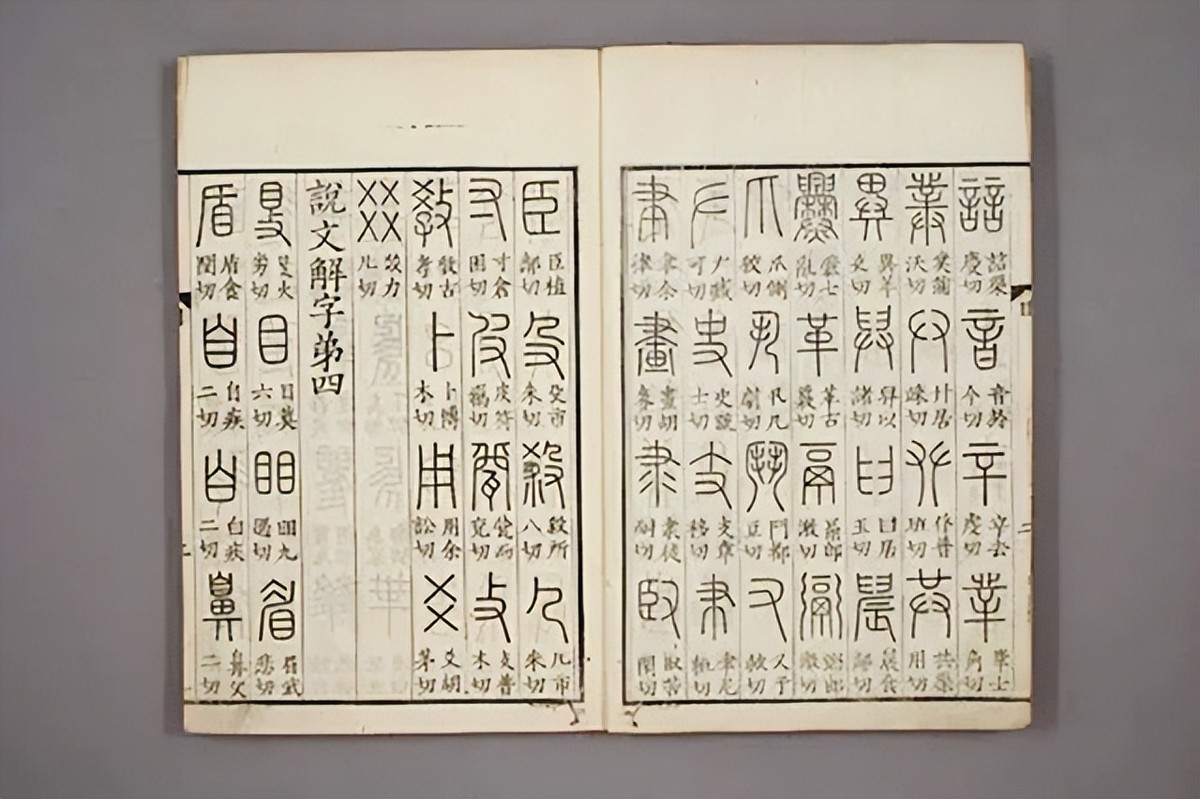 誩誩渠慶切音音於今切䇂䇂去虔切丵丵士角切
菐菐蒲沃切廾廾居竦切𠬜𠬜普班切共共渠用切
異異羊吏切舁舁以諸切𦥑𦥑居玉切晨晨食鄰切
爨爨七亂切革革古覈切鬲鬲郎激切䰜䰜郎激切
爪爪側狡切丮丮几劇切鬥鬥都豆切又又于救切
𠂇𠂇臧可切史史疏士切支支章移切𦘒𦘒尼輒切
聿聿余律切畫畫胡麥切隶隶徒耐切臤臤苦閑切
臣臣植鄰切殳殳市朱切殺殺所八切𠘧𠘧市朱切
寸寸倉困切皮皮符羈切㼱㼱而兗切攴攴普木切
教教古孝切卜卜博木切用用余訟切爻爻胡茅切
㸚㸚力几切
說文解字弟四
𥄎𥄎火劣切目目莫六切䀠䀠九遇切眉眉武悲切
盾盾食閏切自自疾二切白白疾二切鼻鼻父二切